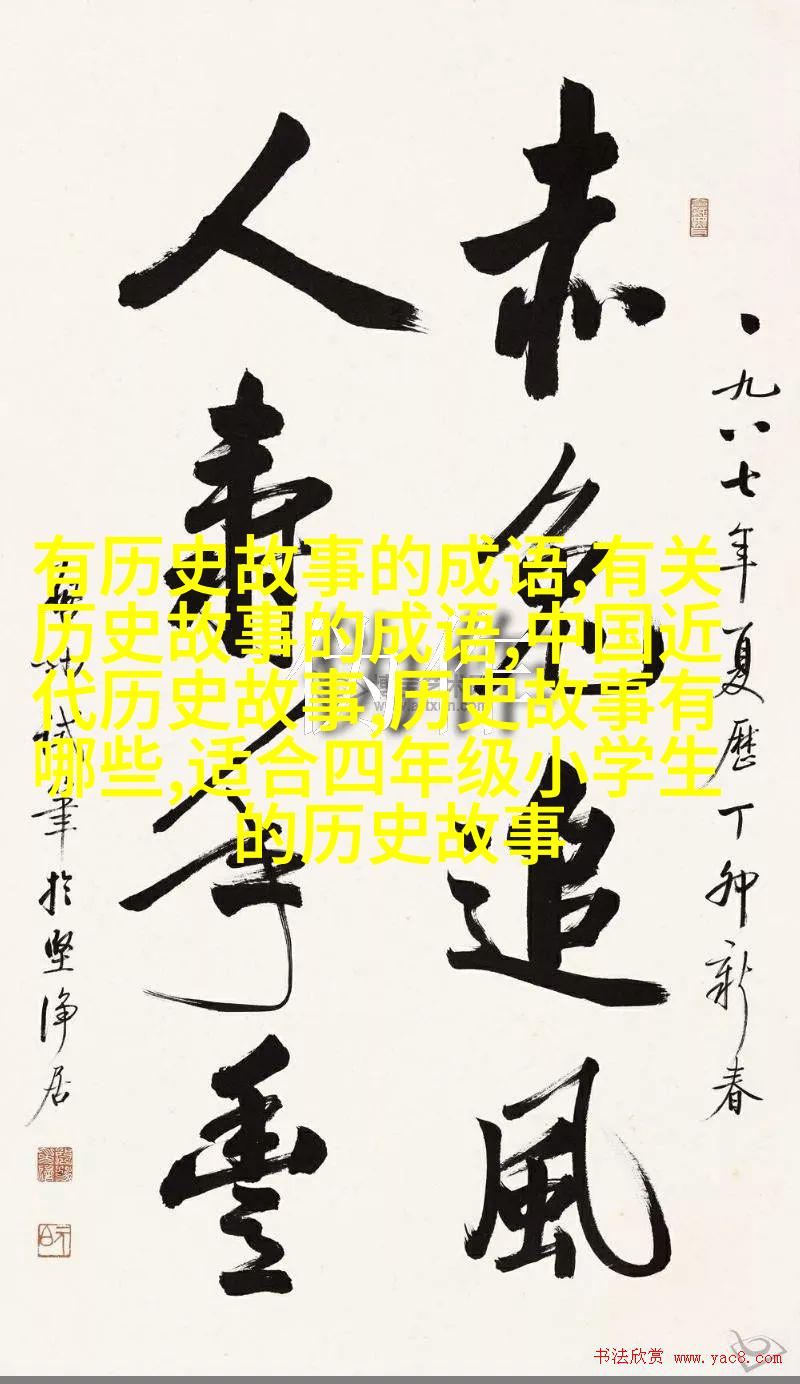 一九八七年夏歷丁卯新春
赤兔追風
人壽年豐
筆於堅淨居
有历史故事的成语,有关
历史故事的成语,中国近
代历史故事,历史故事有
哪些,适合四年级小学生
的历史故事
书法欣赏 www.yac8.com